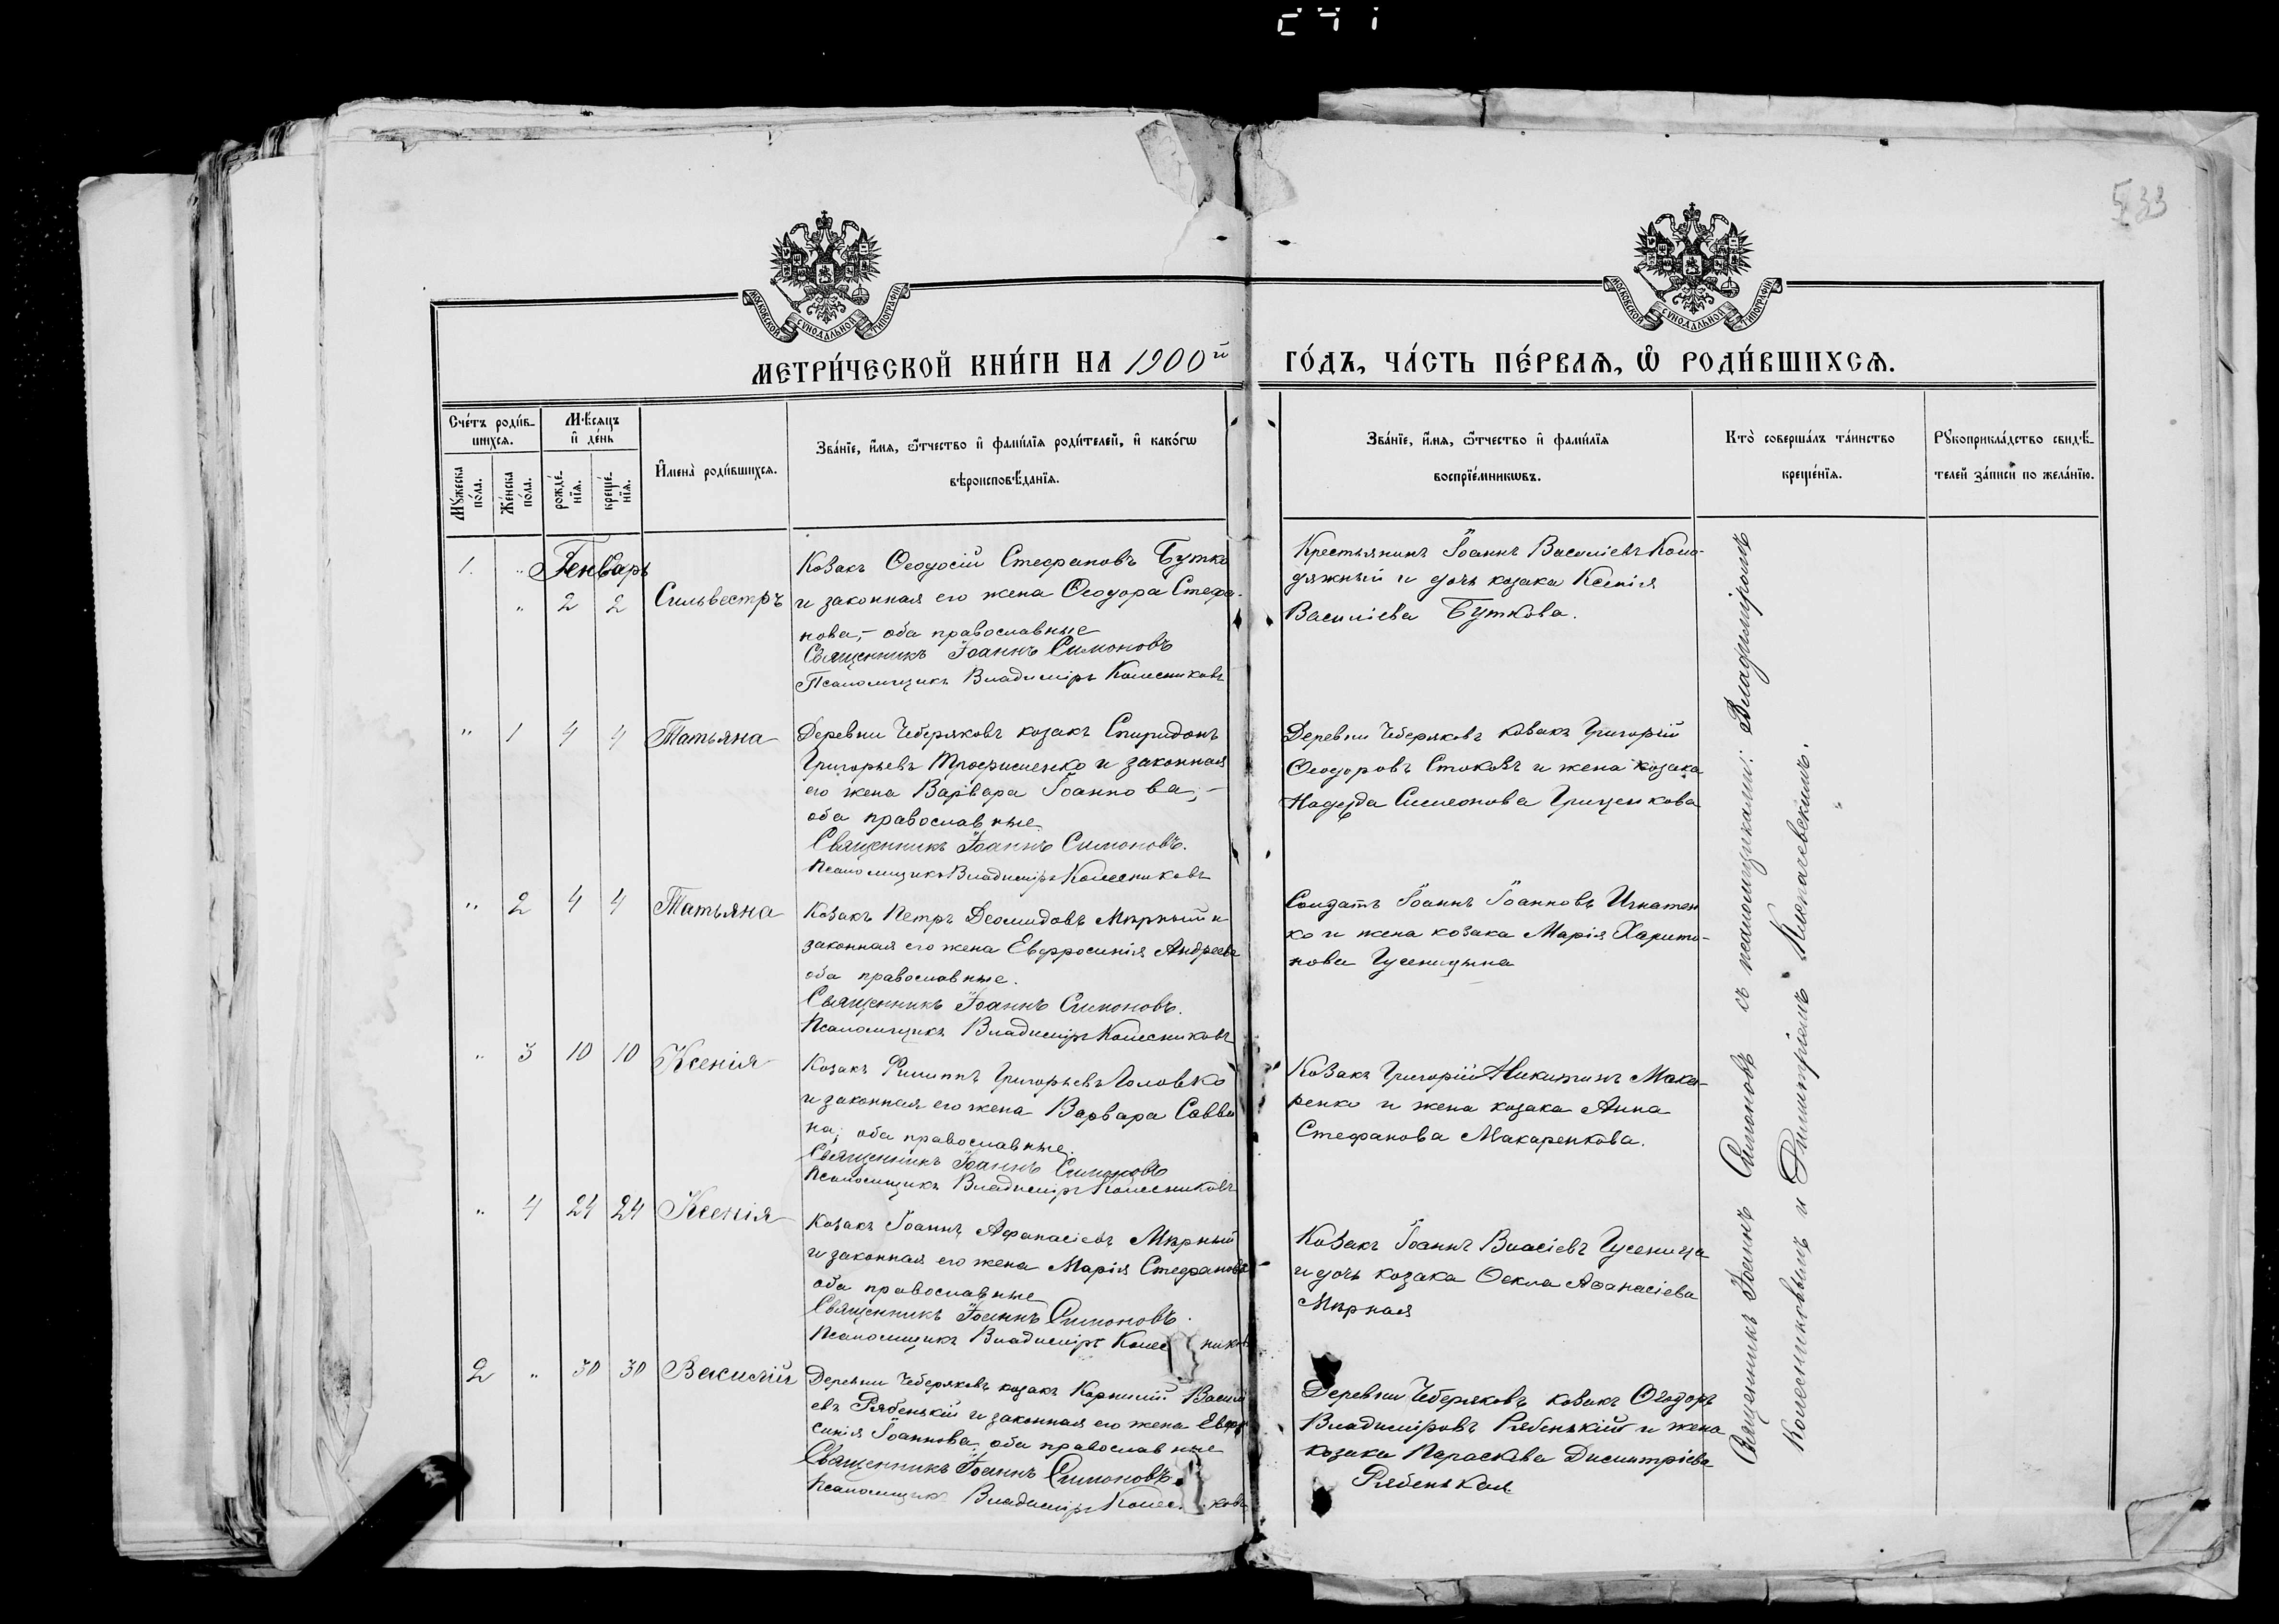 533
МОСКОВСКОЙ СѴНОДАЛЬНОЙ ТИПОГРАФІИ
МОСКОВСКОЙ СѴНОДАЛЬНОЙ ТИПОГРАФІИ
МЕТРИ́ЧЕСКОЙ КНИ́ГИ НА 1900й ГО́ДЪ, ЧА́СТЬ ПЕ́РВАѦ, Ѽ РОДИ́ВШИХСѦ.
Сче́тъ роди́в-
шихсѧ.
Мѣ́сѧцъ
и҆ де́нь
Мꙋ́жеска
по́ла.
Же́нска
по́ла.
рожде́-
нїѧ.
креще́-
нїѧ.
И҆мена̀ роди́вшихсѧ.
Зва́нїе, и҆́мѧ, ѻ҆́тчество и҆ фами́лїѧ роди́телей, и҆ како́гѡ
вѣроисповѣ́данїѧ.
Зва́нїе, и҆́мѧ, ѻ҆́тчество и҆ фами́лїѧ
воспрїе́мникѡвъ.
Кто̀ соверша́лъ та́инство
креще́нїѧ.
Рꙋкоприкла́дство свидѣ́-
телей за́писи по жела́нїю.
Генварь
1. " 2 2 Сильвестръ
Козакъ Ѳеодосій Стефановъ Бутко
и законная его жена Ѳеодора Стефа-
нова,- оба православные
Священникъ Іоаннъ Симоновъ
Псаломщикъ Владиміръ Колесниковъ
Крестьянинъ Іоаннъ Василіевъ Коло-
дяжный и дочь козака Ксенія
Василіева Буткова.
" 1 4 4 Татьяна
Деревни Чеберяковъ козакъ Спиридонъ
Григорьевъ Трофименко и законная
его жена Варвара Іоаннова,-
оба православные
Священникъ Іоаннъ Симоновъ.
Псаломщикъ Владиміръ Колесниковъ
Деревни Чеберяковъ козакъ Григорій
Ѳеодоровъ Стоковъ и жена козака
Надежда Симеонова Гриценкова
" 2 4 4 Татьяна
Козакъ Петръ Деомидовъ Мирный и
законная его жена Евфросинія Андреева
оба православные.
Священникъ Іоаннъ Симоновъ.
Псаломщикъ Владиміръ Колесниковъ
Солдатъ Іоаннъ Іоанновъ Игнатен
ко и жена козака Марія Харито-
нова Гусеницына
" 3 10 10 Ксенія
Козакъ Филиппъ Григорьевъ Головко
и законная его жена Варвара Савви
на; оба православные.
Священникъ Іоаннъ Симоновъ
Псаломщикъ Владиміръ Колесниковъ
Козакъ Григорій Никитинъ Мака-
ренко и жена козака Анна
Стефанова Макаренкова.
" 4 24 24 Ксенія
Козакъ Іоаннъ Афанасіевъ Мирный
и законная его жена Марія Стефанова
оба православные
Священникъ Іоаннъ Симоновъ.
Псаломщикъ Владиміръ Колесников
Козакъ Іоаннъ Власіевъ Гусеница
и дочь козака Ѳекла Аѳанасіева
Мирная
2 " 30 30 Василій
Деревни Чеберяковъ козакъ Корнилій Васили
евъ Рябенькій и законная его жена Евфро
синія Іоаннова, оба православные
Священникъ Іоаннъ Симоновъ.
Псаломщикъ Владиміръ Колес ковъ
Деревни Чеберяковъ козакъ Ѳеодоръ
Владиміровъ Рябенькій и жена
козака Параскева Димитріева
Рябенькая
Священникъ Іоаннъ Симоновъ съ псаломщиками: Владиміромъ
Колесниковымъ и Димитріемъ Клепачевскимъ.